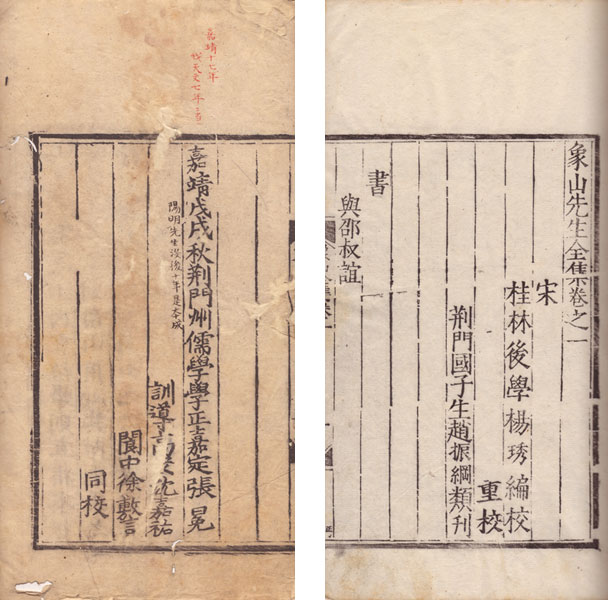 象山先生全集卷之一
宋
桂林後學楊琇編校
重校
荊門國子生趙振綱類刊
書
與邵叔誼
嘉靖十七年
我天文七年
嘉靖戊戌秋荊門州儒學學正嘉定張冕
陽明先生沒後十年是本成
訓導高安沈嘉祐
閬中徐敷言
同校